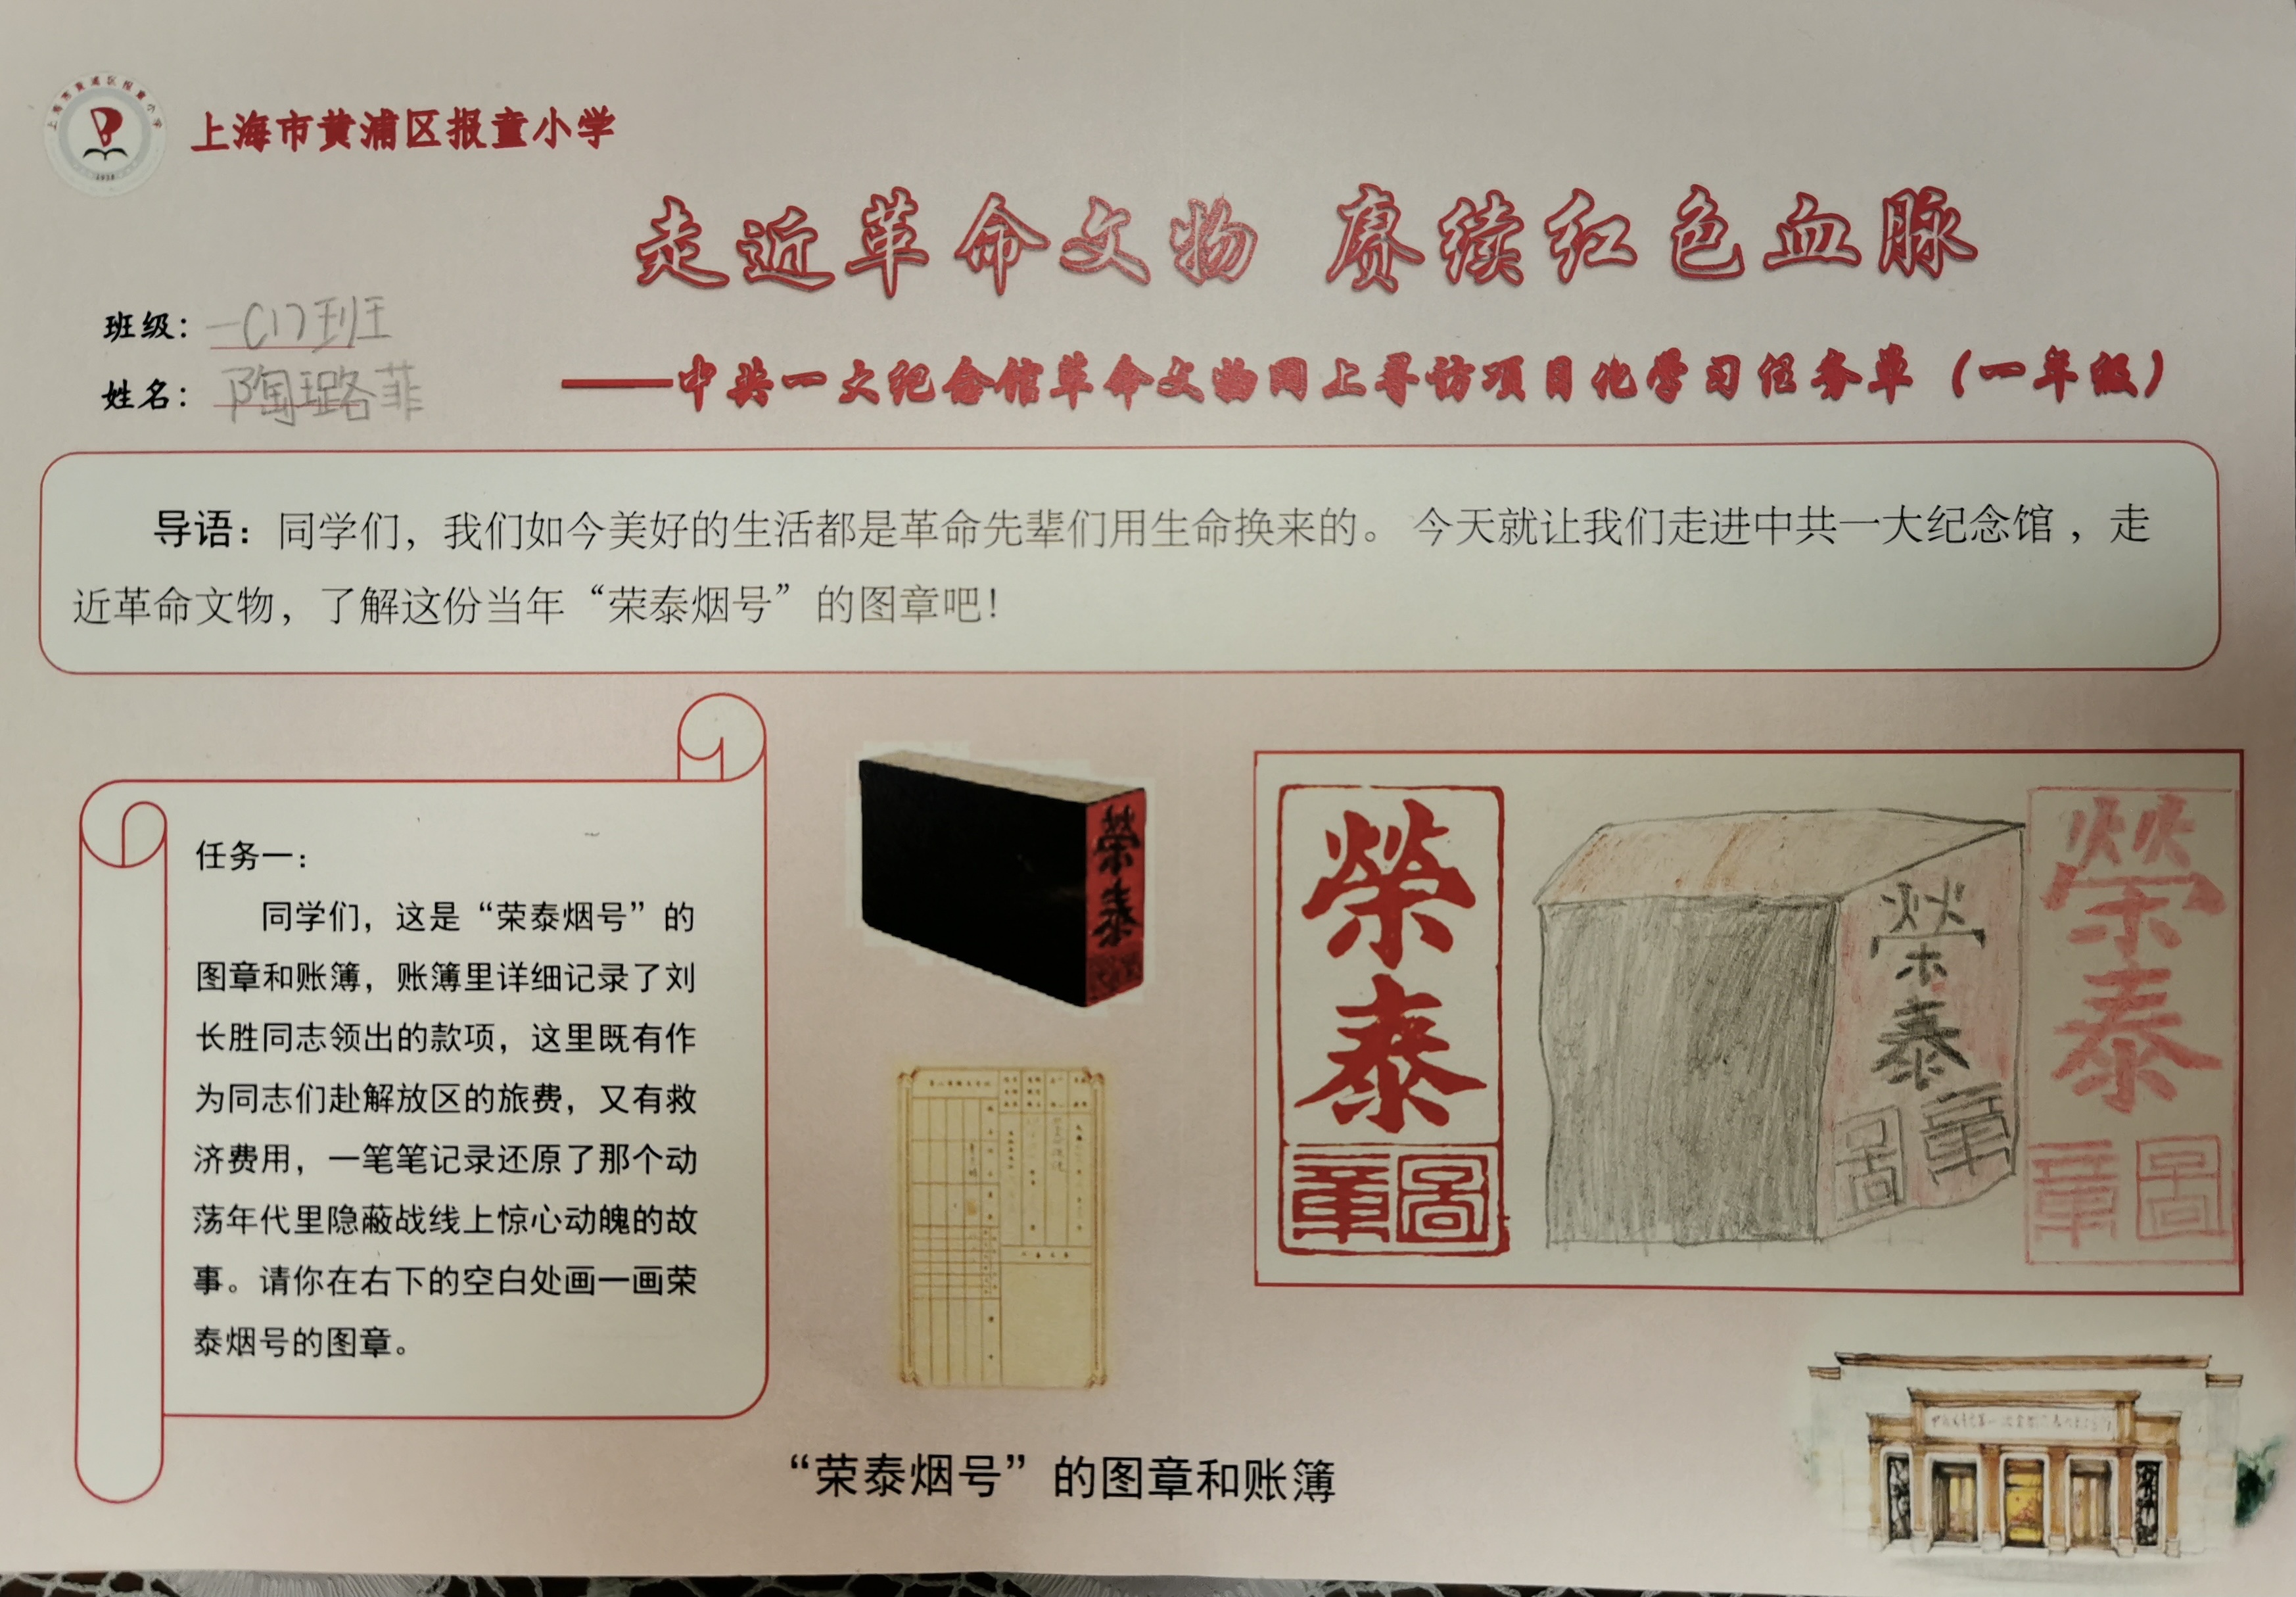 上海市黄浦区报童小学
上海市黄浦区报童小学
1938
走近革命文物 赓续红色血脉
班级：一(1)班
姓名：陶璐菲
——中共一大纪念馆革命文物网上寻访项目化学习任务单（一年级）
导语：同学们，我们如今美好的生活都是革命先辈们用生命换来的。 今天就让我们走进中共一大纪念馆，走
近革命文物，了解这份当年“荣泰烟号”的图章吧！
任务一：
同学们，这是“荣泰烟号”的
图章和账簿，账簿里详细记录了刘
长胜同志领出的款项，这里既有作
为同志们赴解放区的旅费，又有救
济费用，一笔笔记录还原了那个动
荡年代里隐蔽战线上惊心动魄的故
事。请你在右下的空白处画一画荣
泰烟号的图章。
榮泰
榮泰
圖章
榮泰
圖章
榮泰
圖章
“荣泰烟号”的图章和账簿